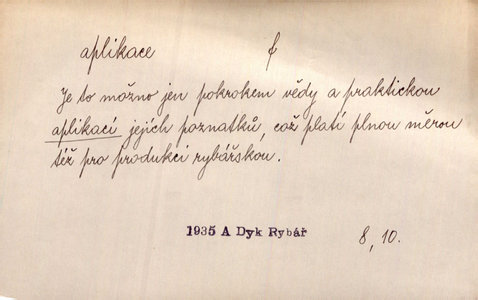 aplikace f
Je to možno jen pokrokem vědy a praktickou
aplikací jejích poznatků, což platí plnou měrou
též pro produkci rybářskou.
1935 A Dyk Rybář 8, 10.